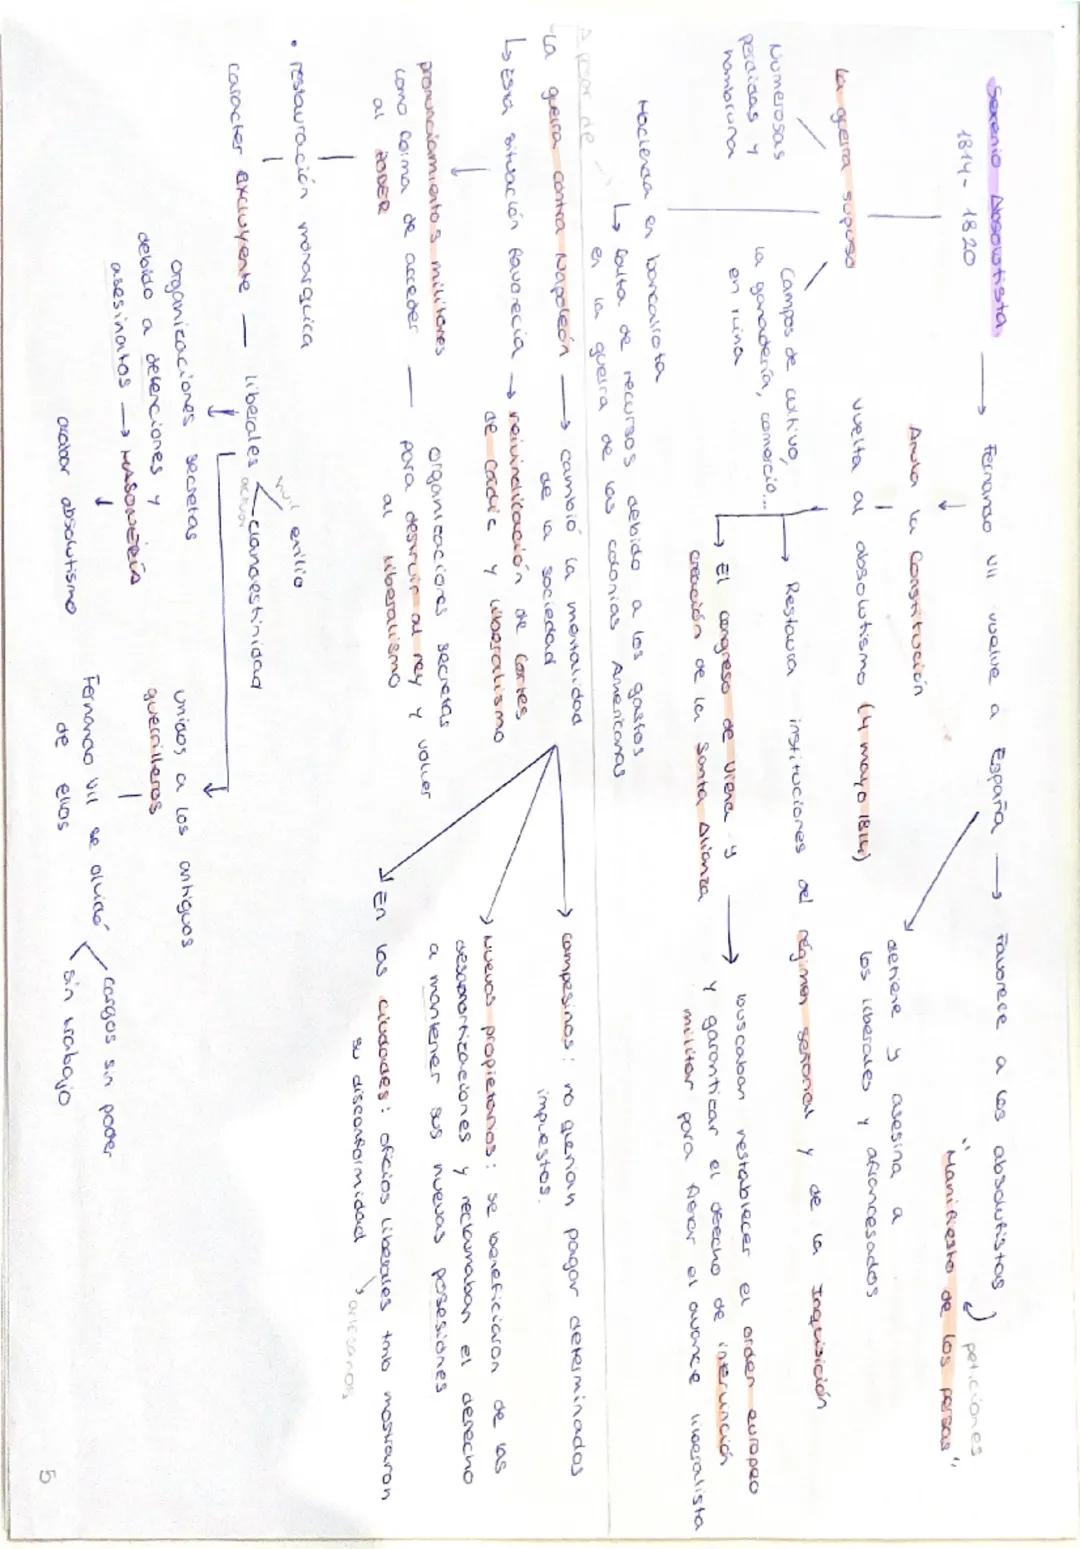 Sexenio Absolutista → Fernando VII vuelve a España → Favorece a los absolutistas
1814 - 1820
peticiones
"Manifiesto de los persas"
Anula la Constitución
detiene y asesina a
los liberales y afrancesados
vuelta al absolutismo (4 mayo 1814)
La guerra supuso
Numerosas
perdidas y
hambruna
Campos de cultivo,
la ganadería, comercio...
en ruina
→ Restaura instituciones del régimen señorial y de la Inquisición
↳ El congreso de Viena y
creación de la Santa Alianza
→ buscaban restablecer el orden europeo
y garantizar el derecho de
militar para frenar el avance liberalista
Hacienda en bancarrota
↳ falta de recursos debido a los gastos
en la guerra de las colonias Americanas
A pesar de
La guerra contra Napoleón → cambió la mentalidad
de la sociedad
↳ Esta situación favorecía → reivindicación de Cortes
de Cádiz y liberalismo
→ campesinos: no querían pagar determinados
impuestos.
→ Nuevos propietarios: se beneficiaron de las
desamortizaciones y reclamaban el derecho
a mantener sus nuevas posesiones
→ En las ciudades: oficios liberales tmb mostraron
su disconformidad
artesanos
pronunciamientos militares
como forma de acceder
al PODER
organizaciones secretas
para destruir al rey y volver
al liberalismo
• restauración monárquica
caracter excluyente — liberales
exilio
clandestinidad
organizaciones secretas
debido a detenciones y
asesinatos → MASONERÍA
acabar absolutismo
unidos a los antiguos
guerrilleros
Fernando VII se olvidó
de ellos
cargos sin poder
sin trabajo
5